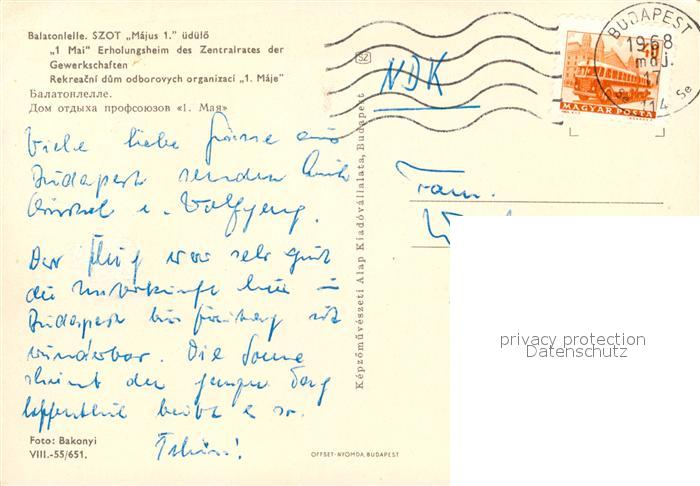 Balatonlelle. SZOT „Május 1.” üdülő
„1 Mai” Erholungsheim des Zentralrates der
Gewerkschaften
Rekreační dům odborovych organizací „1. Máje”
Балатонлелле.
Дом отдыха профсоюзов «1. Мая»
Viele liebe Grüsse aus
Budapest senden Euch
u. Wolfgang.
Der Flug war sehr gut
die Unterkunft hier in
Budapest bis Freitag ist
wunderbar. Die Sonne
scheint den ganzen Tag
hoffentlich bleibt es so.
Tschüss!
Foto: Bakonyi
VIII.-55/651.
OFFSET-NYOMDA, BUDAPEST
Képzőművészeti Alap Kiadóvállalata, Budapest
SZ
NDK
BUDAPEST
1968
máj.
17
114
40
MAGYAR POSTA
Fam.
privacy protection
Datenschutz